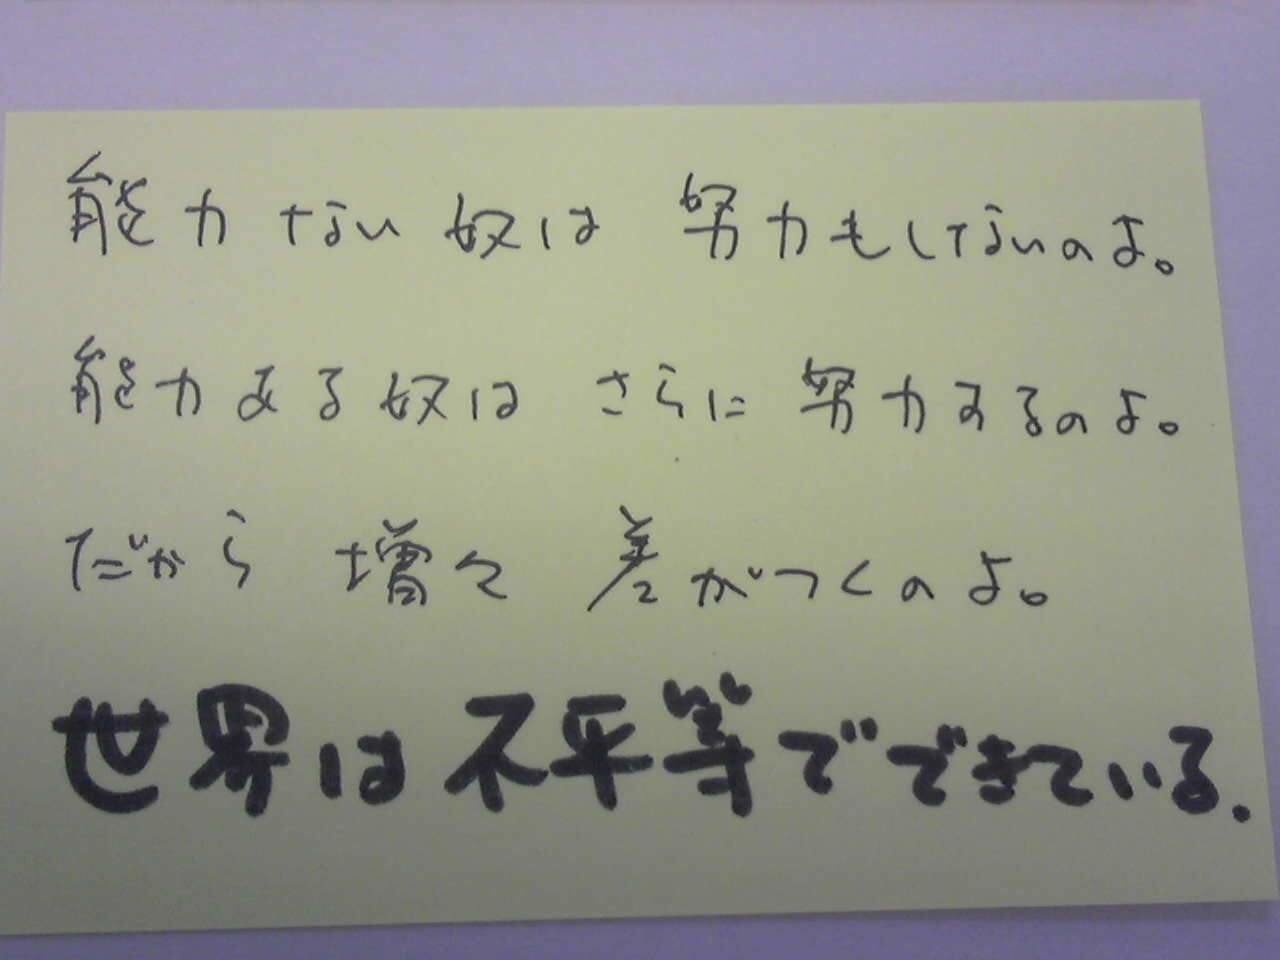 能力ない奴は 努力もしてないのよ。
能力ある奴は さらに努力するのよ。
だから 増々 差がつくのよ。
世界は不平等でできている.